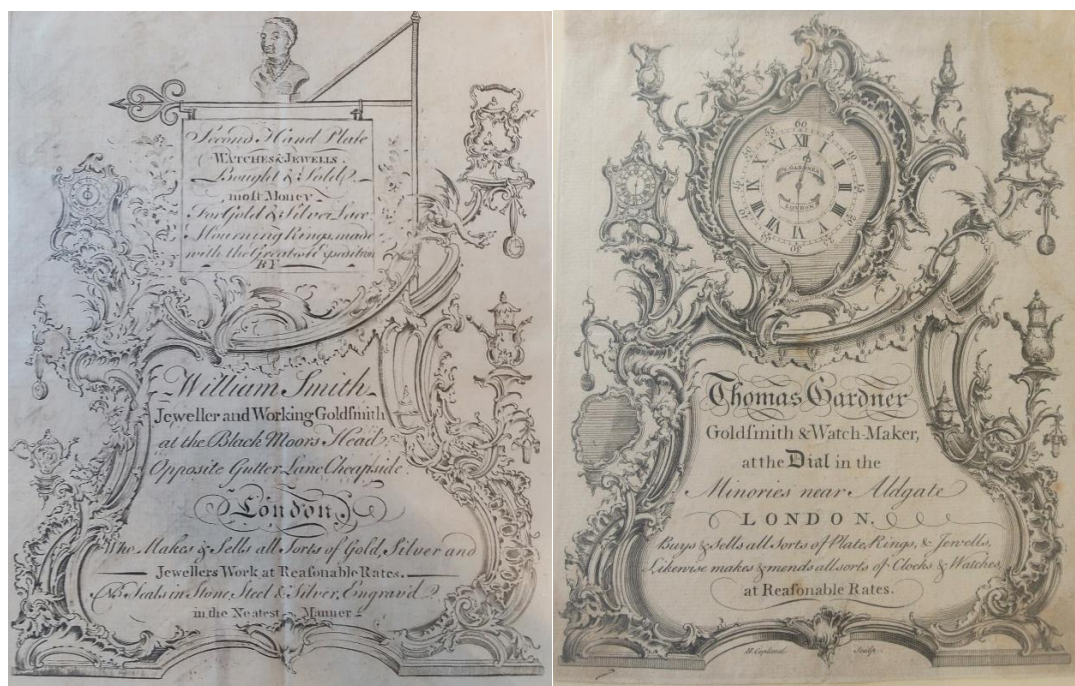 Second Hand Plate
WATCHES & JEWELLS.
Bought & Sold
most Money
For Gold & Silver Lace
Mourning Rings made
with the Greatest Expedition
BY
William Smith
Jeweller and Working Goldſmith
at the Black Moors Head,
Opposite Gutter-Lane Cheapside.
London.
Who Makes & Sells all Sorts of Gold, Silver and
Jewellers Work at Reaſonable Rates.
NB. Seals in Stone, Steel & Silver, Engrav'd
in the Neatest Manner
60 5 10 15 20 40 45 55
XII I II III IV V VI VII VIII IX X XI
GARDNER
LONDON
Thomas Gardner
Goldſmith & Watch-Maker,
at the Dial in the
Minories near Aldgate
LONDON.
Buys & Sells all Sorts of Plate, Rings, & Jewells,
Likewise makes & mends all sorts of Clocks & Watches,
at Reaſonable Rates.
H. Copland Sculp.